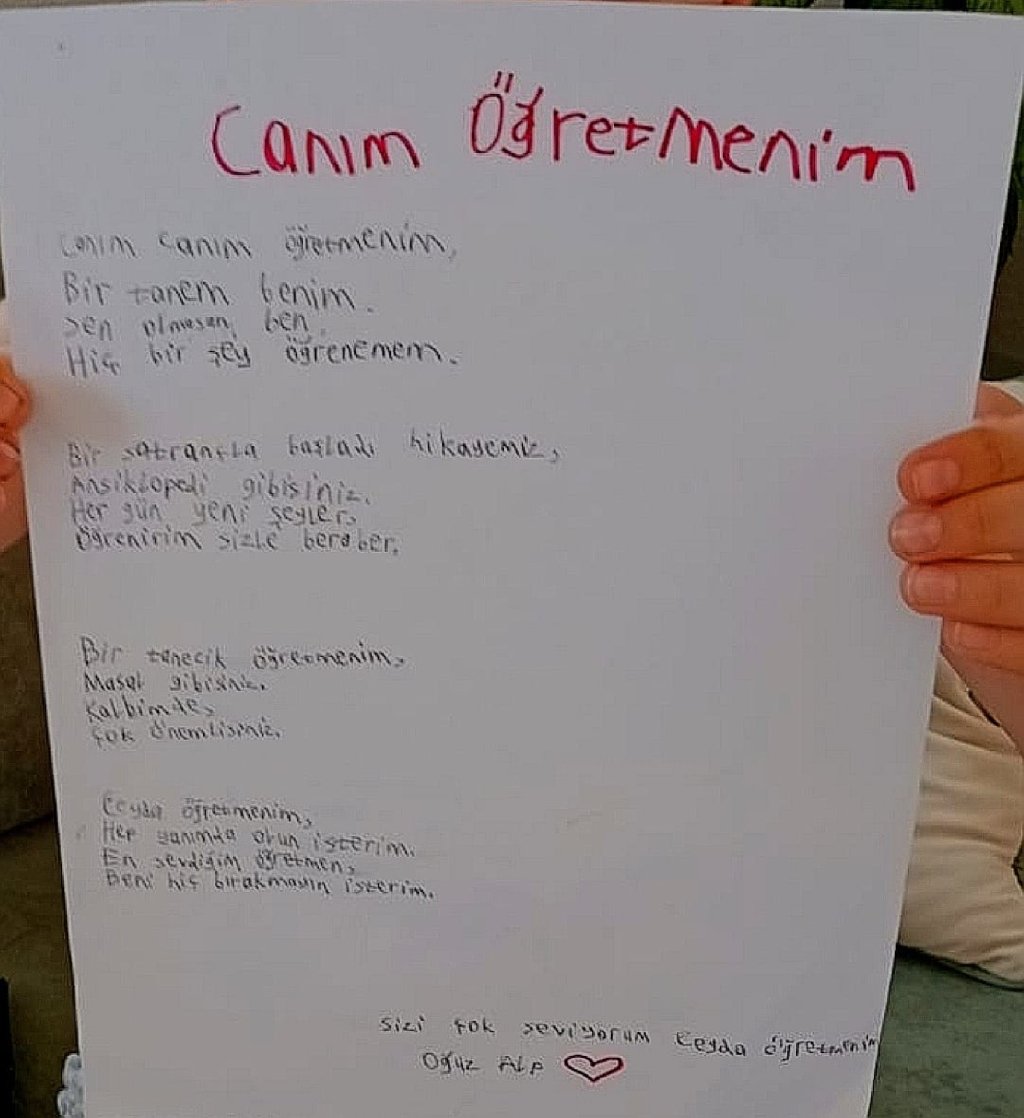 Canım Öğretmenim
Canım canım öğretmenim,
Bir tanem benim.
Sen olmasan, ben,
Hiç bir şey öğrenemem.
Bir satrançla başladı hikayemiz,
Ansiklopedi gibisiniz.
Her gün yeni şeyler,
Öğrenirim sizle beraber.
Bir tanecik öğretmenim,
Masal gibisiniz.
Kalbimde,
çok önemlisiniz.
Ceyda öğretmenim,
Hep yanımda olun isterim.
En sevdiğim öğretmen,
Beni hiç bırakmasın isterim.
Sizi çok seviyorum Ceyda öğretmenim
Oğuz Alp